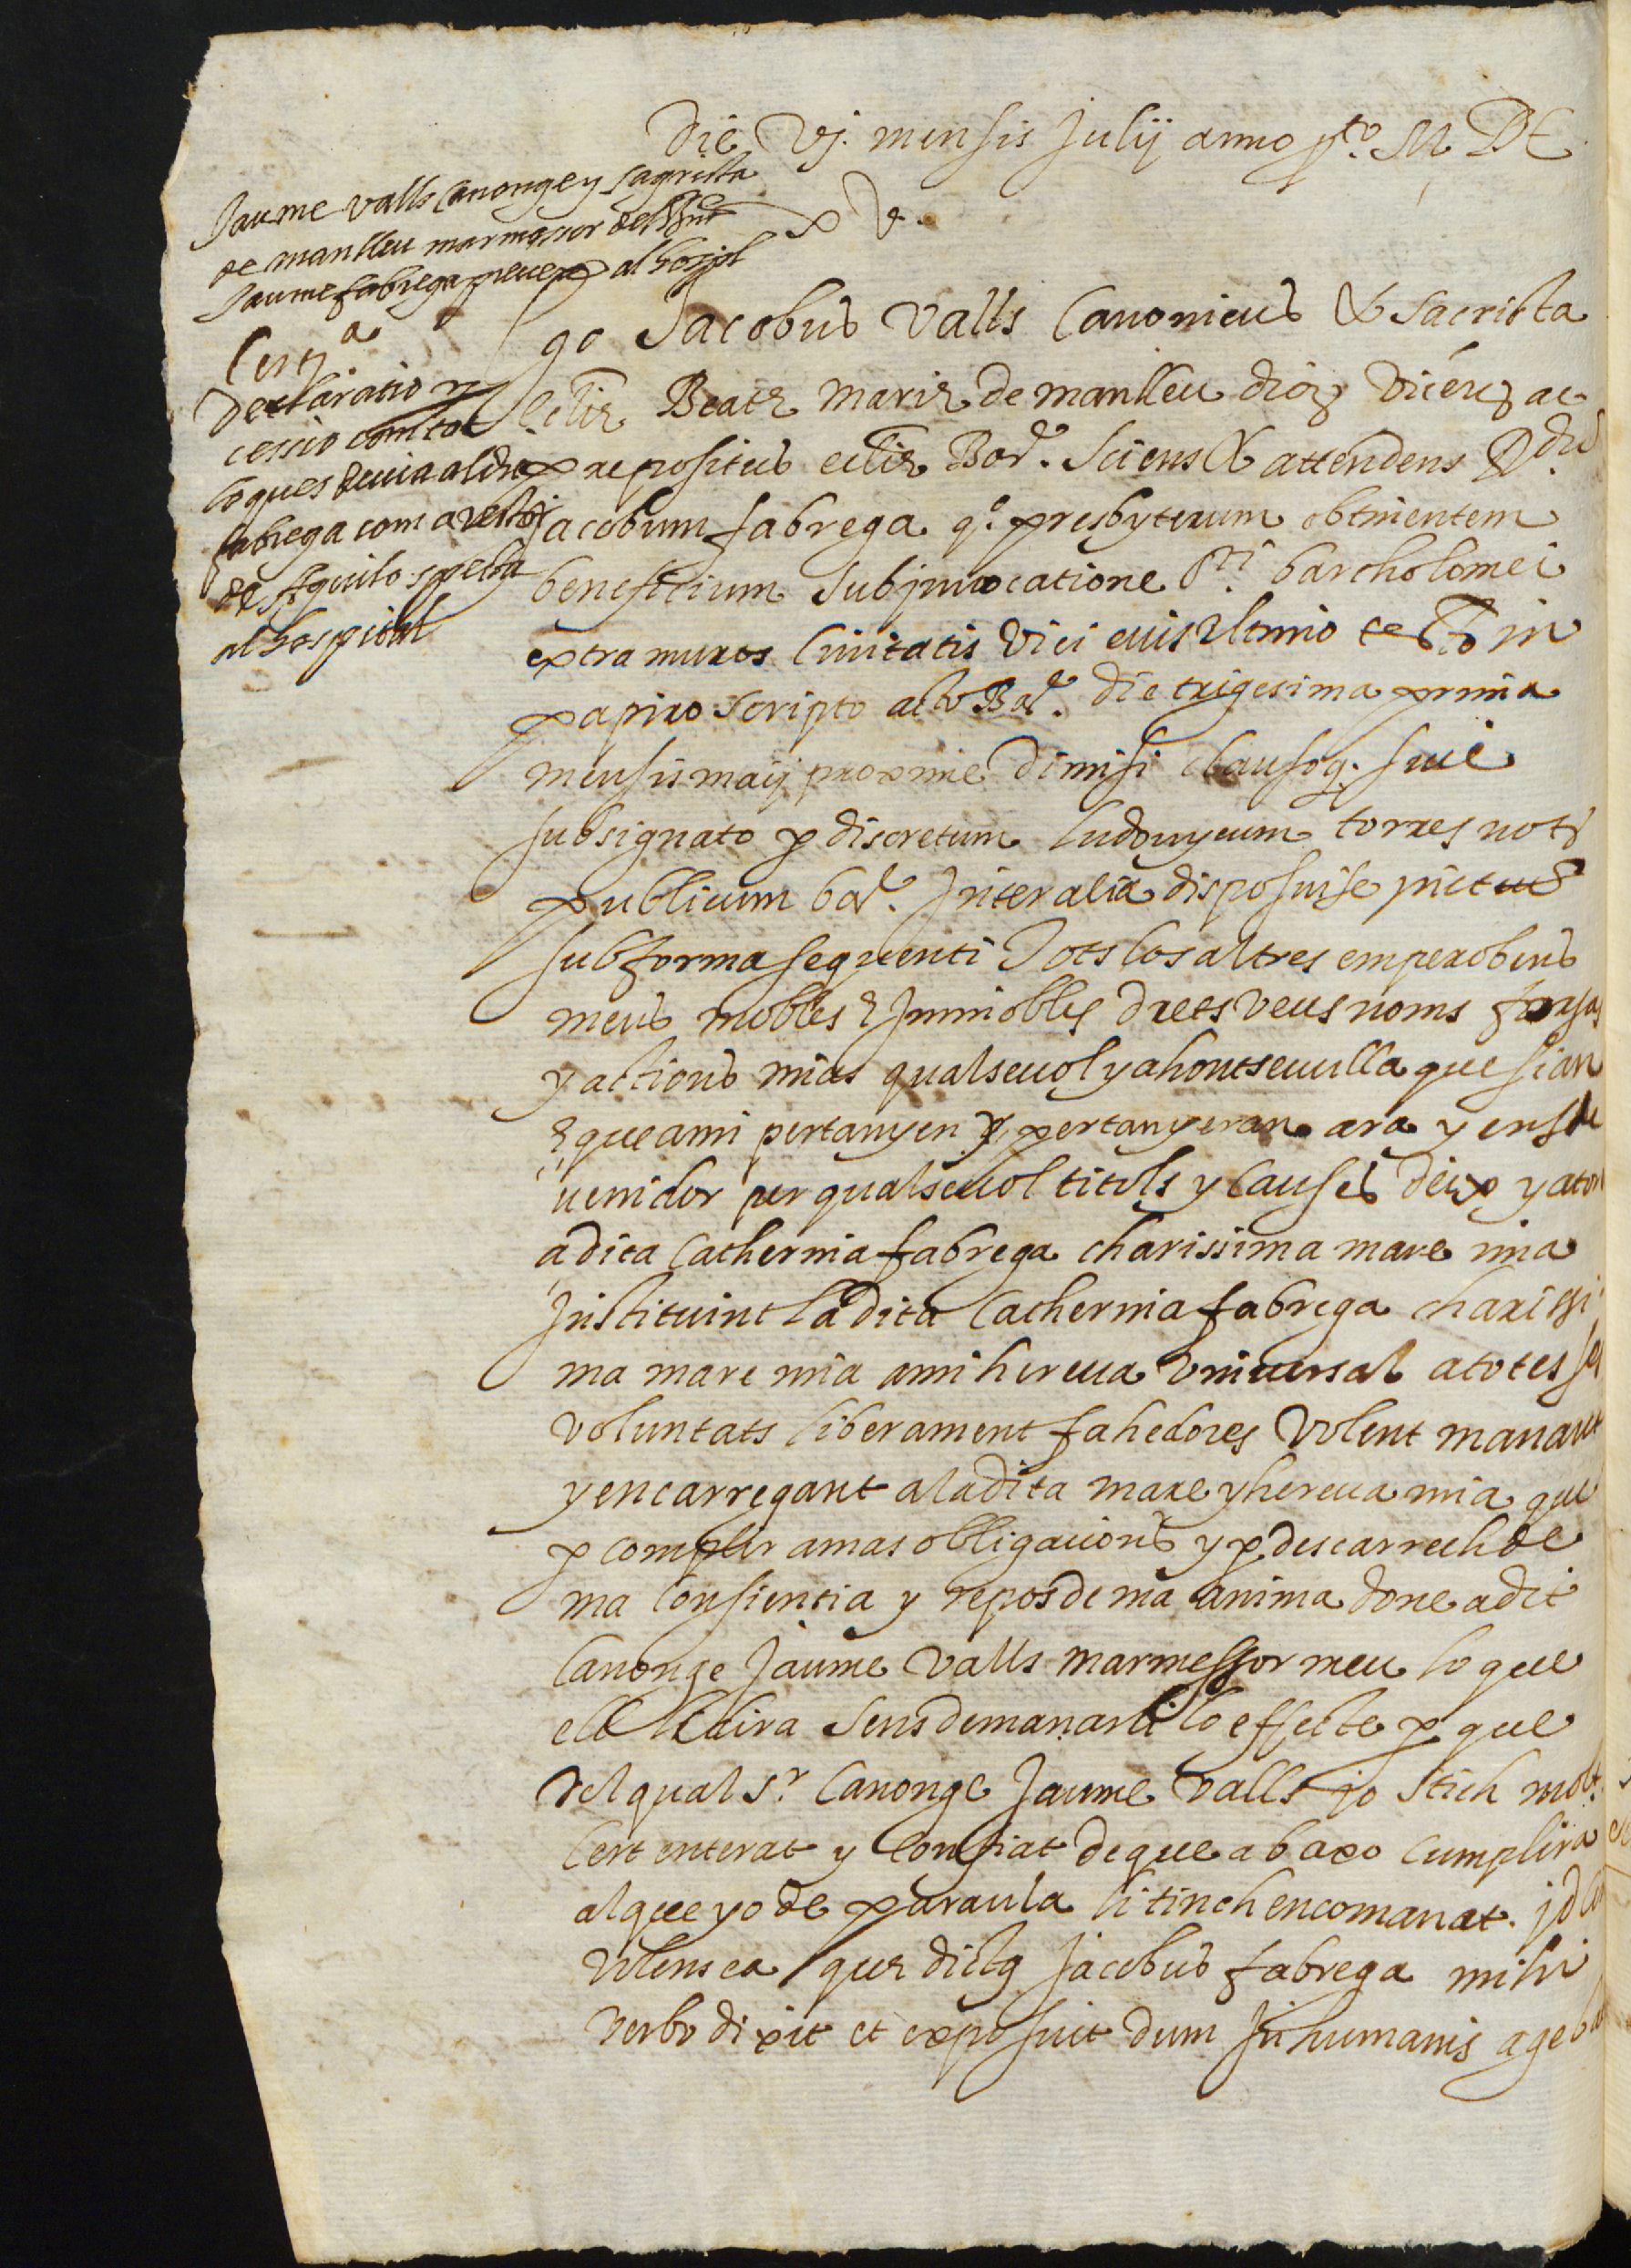 Die vj. mensis Julij anno pto. M DC
x v.
Jaume valls Canonge y sagrista
de manlleu marmessor del Rnt
Jaume fabrega prevere al hospl
Certa
declaratio y
cessio com tot
lo ques devia al dit
fabrega com a
de Aquilo specta
al hospital
go Jacobus Valls Canonicus & sacrista
Eccliæ Beatæ Mariæ de manlleu diocs Vicen ac
præpositus eccliæ Bar. sciens & attendens R du
Jacobum fabrega q. presbyterum obtinentem
beneficium sub jnvocatione Sti bartholomei
extra muros Civitatis Vici eius ultimo testo in
papiro scripto acto Bar. die trigesima prima
mensis maij proxime dimisi clausoq. sive
subsignato p discretum Ludovycum torres not
publicum bar. Inter alia disposuise
sub forma sequenti Tots los altres empero bens
meus mobles & Immobles drets veus noms forsas
y actions mias qualsevol y ahont sevulla que sian
& que a mi pertanyen y pertanyeran ara y en sde
venidor per qualsevol titols y causes deixo y ator
a dita Catherina fabrega charissima mare mia
Instituint la dita Catherina fabrega charissi
ma mare mia a mi hereva universal a totes ses
voluntats liberament fahedores Volent manant
y encarregant a la dita mare y hereva mia que
p complir a mas obligacions y p descarrech de
ma consientia y repos de ma anima done a dit
Canonge Jaume Valls marmessor meu lo que
ell li dira sens demanarli lo effecte p que
del qual sr. Canonge Jaume Valls jo stich molt
cert enterat y confiat de que a baxo cumplira
al que yo de paraula li tinch encomanat. jd
Volens ea quæ dictq Jacobus fabrega mihi
verbo dixit et exposuit dum In humanis ageba